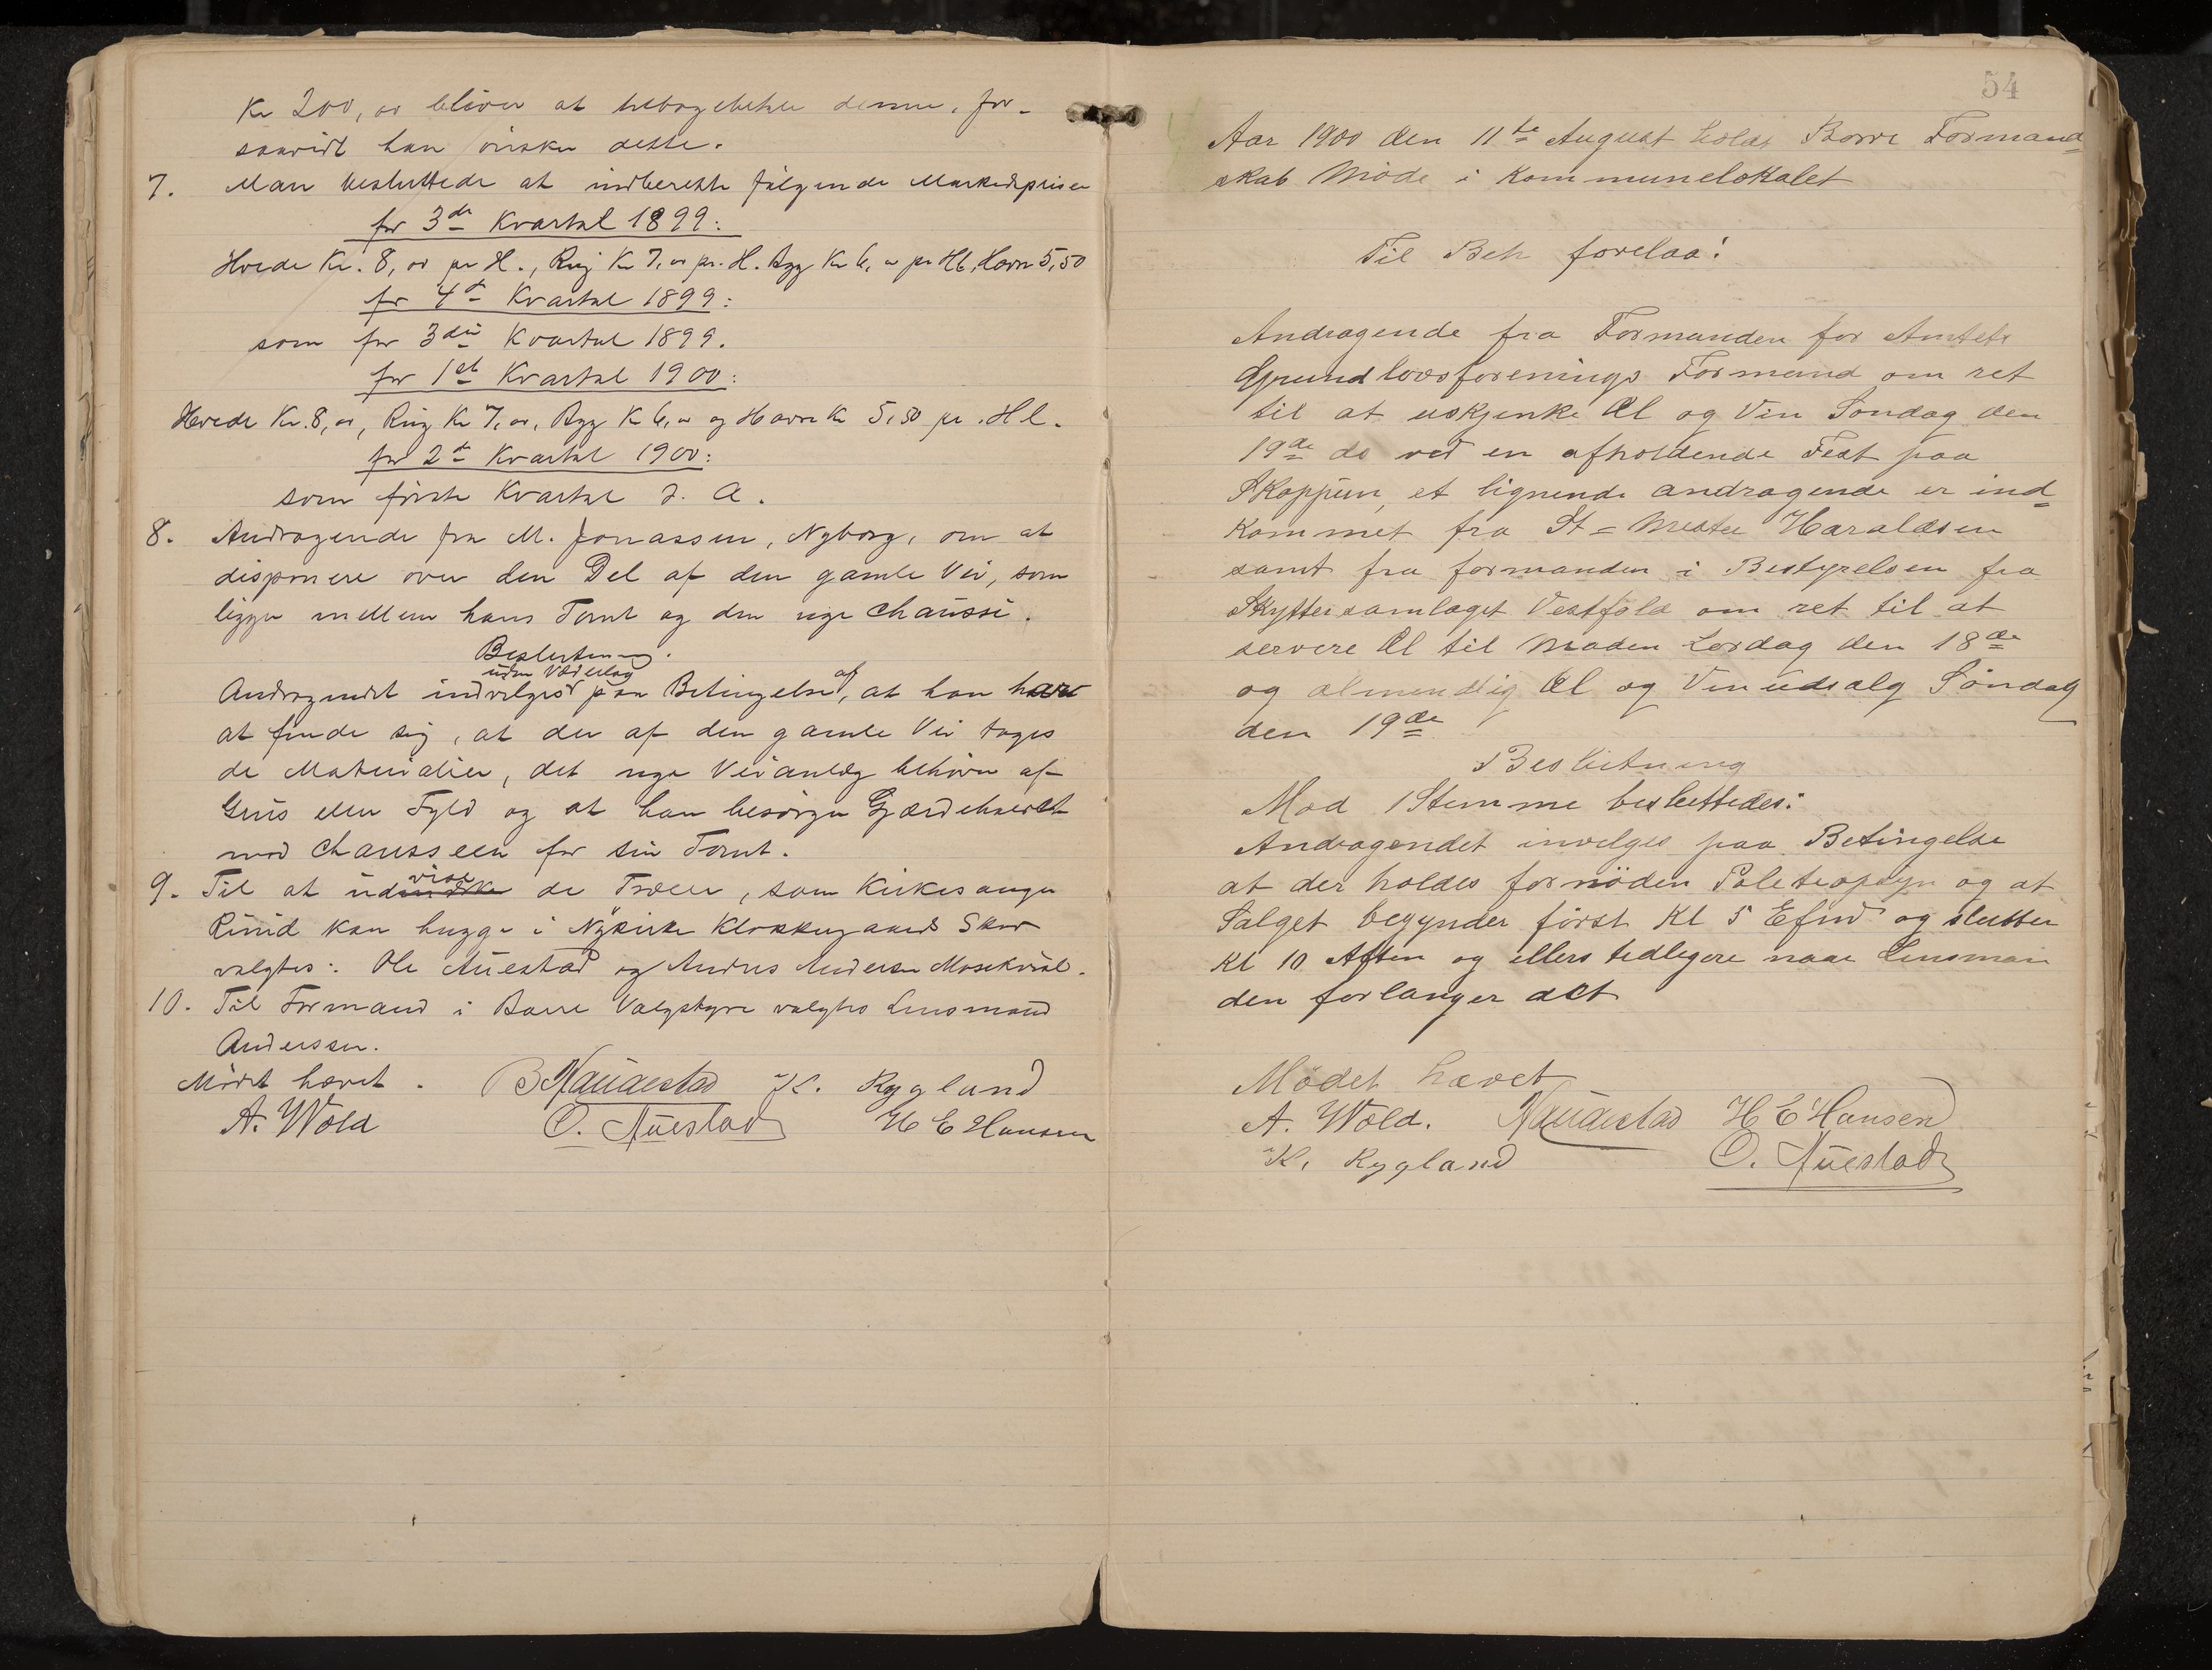 Kr 200, oo bliver at tilbagebetale denne, for-
saavidt han önsker dette.
7. Man besluttede at indberette fölgende Markedspriser
for 3de Kvartal 1899:
Hvede Kr. 8, oo pr H., Rug Kr 7, oo pr. H. Byg Kr 6, oo pr Hl, Havre 5,50
for 4de Kvartal 1899:
som for 3die Kvartal 1899.
for 1ste Kvartal 1900:
Hvede Kr. 8, oo, Rug Kr 7, oo, Byg Kr 6, oo og Havre Kr 5,50 pr. Hl.
for 2det Kvartal 1900:
som förste Kvartal d. A.
8. Andragende fra M. Jonassen, Nyborg, om at
disponere over den Del af den gamle Vei, som
ligger mellem hans Tomt og den nye Chaussé.
Beslutning.
uden Vederlag
Andragendet indvilges paa Betingelse af, at han har
at finde sig, at der af den gamle Vei tages
de Materialier, det nye Veianlæg behöver af
Grus eller Fyld og at han besörger Gjærdeholdet
mod Chausseen for sin Tomt.
9. Til at udvise de Træer, som Kirkesanger
Ruud kan hugge i Nykirke Klokkergaards Skov
valgtes: Ole Auestad og Andreas Andersen Mosekvist.
10. Til Formand i Borre Valgstyre valgtes Lensmand
Andersen.
Mödet hævet. B Nauaestad K. Rygland
A. Wold O. Auestad H E Hansen
54
Aar 1900 den 11te August holdes Borre Formand=
skab Möde i Kommunelokalet
Til Beh forelaa:
Andragende fra Formanden for Amtets
Grundlovsforenings Formand om ret
til at udskjenke Øl og Vin Söndag den
19de ds ved en afholdende Fest paa
Skoppum, et lignende andragende er ind=
kommet fra St=Mester Haraldsen
samt fra formanden i Bestyrelsen fra
Skyttersamlaget Vestfold om ret til at
servere Øl til Maden Lördag den 18de
og almindlig Øl og Vinudsalg Söndag
den 19de
Beslutning
Mod 1 Stemme besluttedes:
Andragendet invelges paa Betingelse
at der holdes fornöden Politiopsyn og at
Salget begynder först Kl 5 Efmd og slutter
Kl 10 Aften og ellers tidligere naar Lensman
den forlanger det
Mödet hævet
A. Wold. Nauaestad H E Hansen
K. Rygland O. Auestad